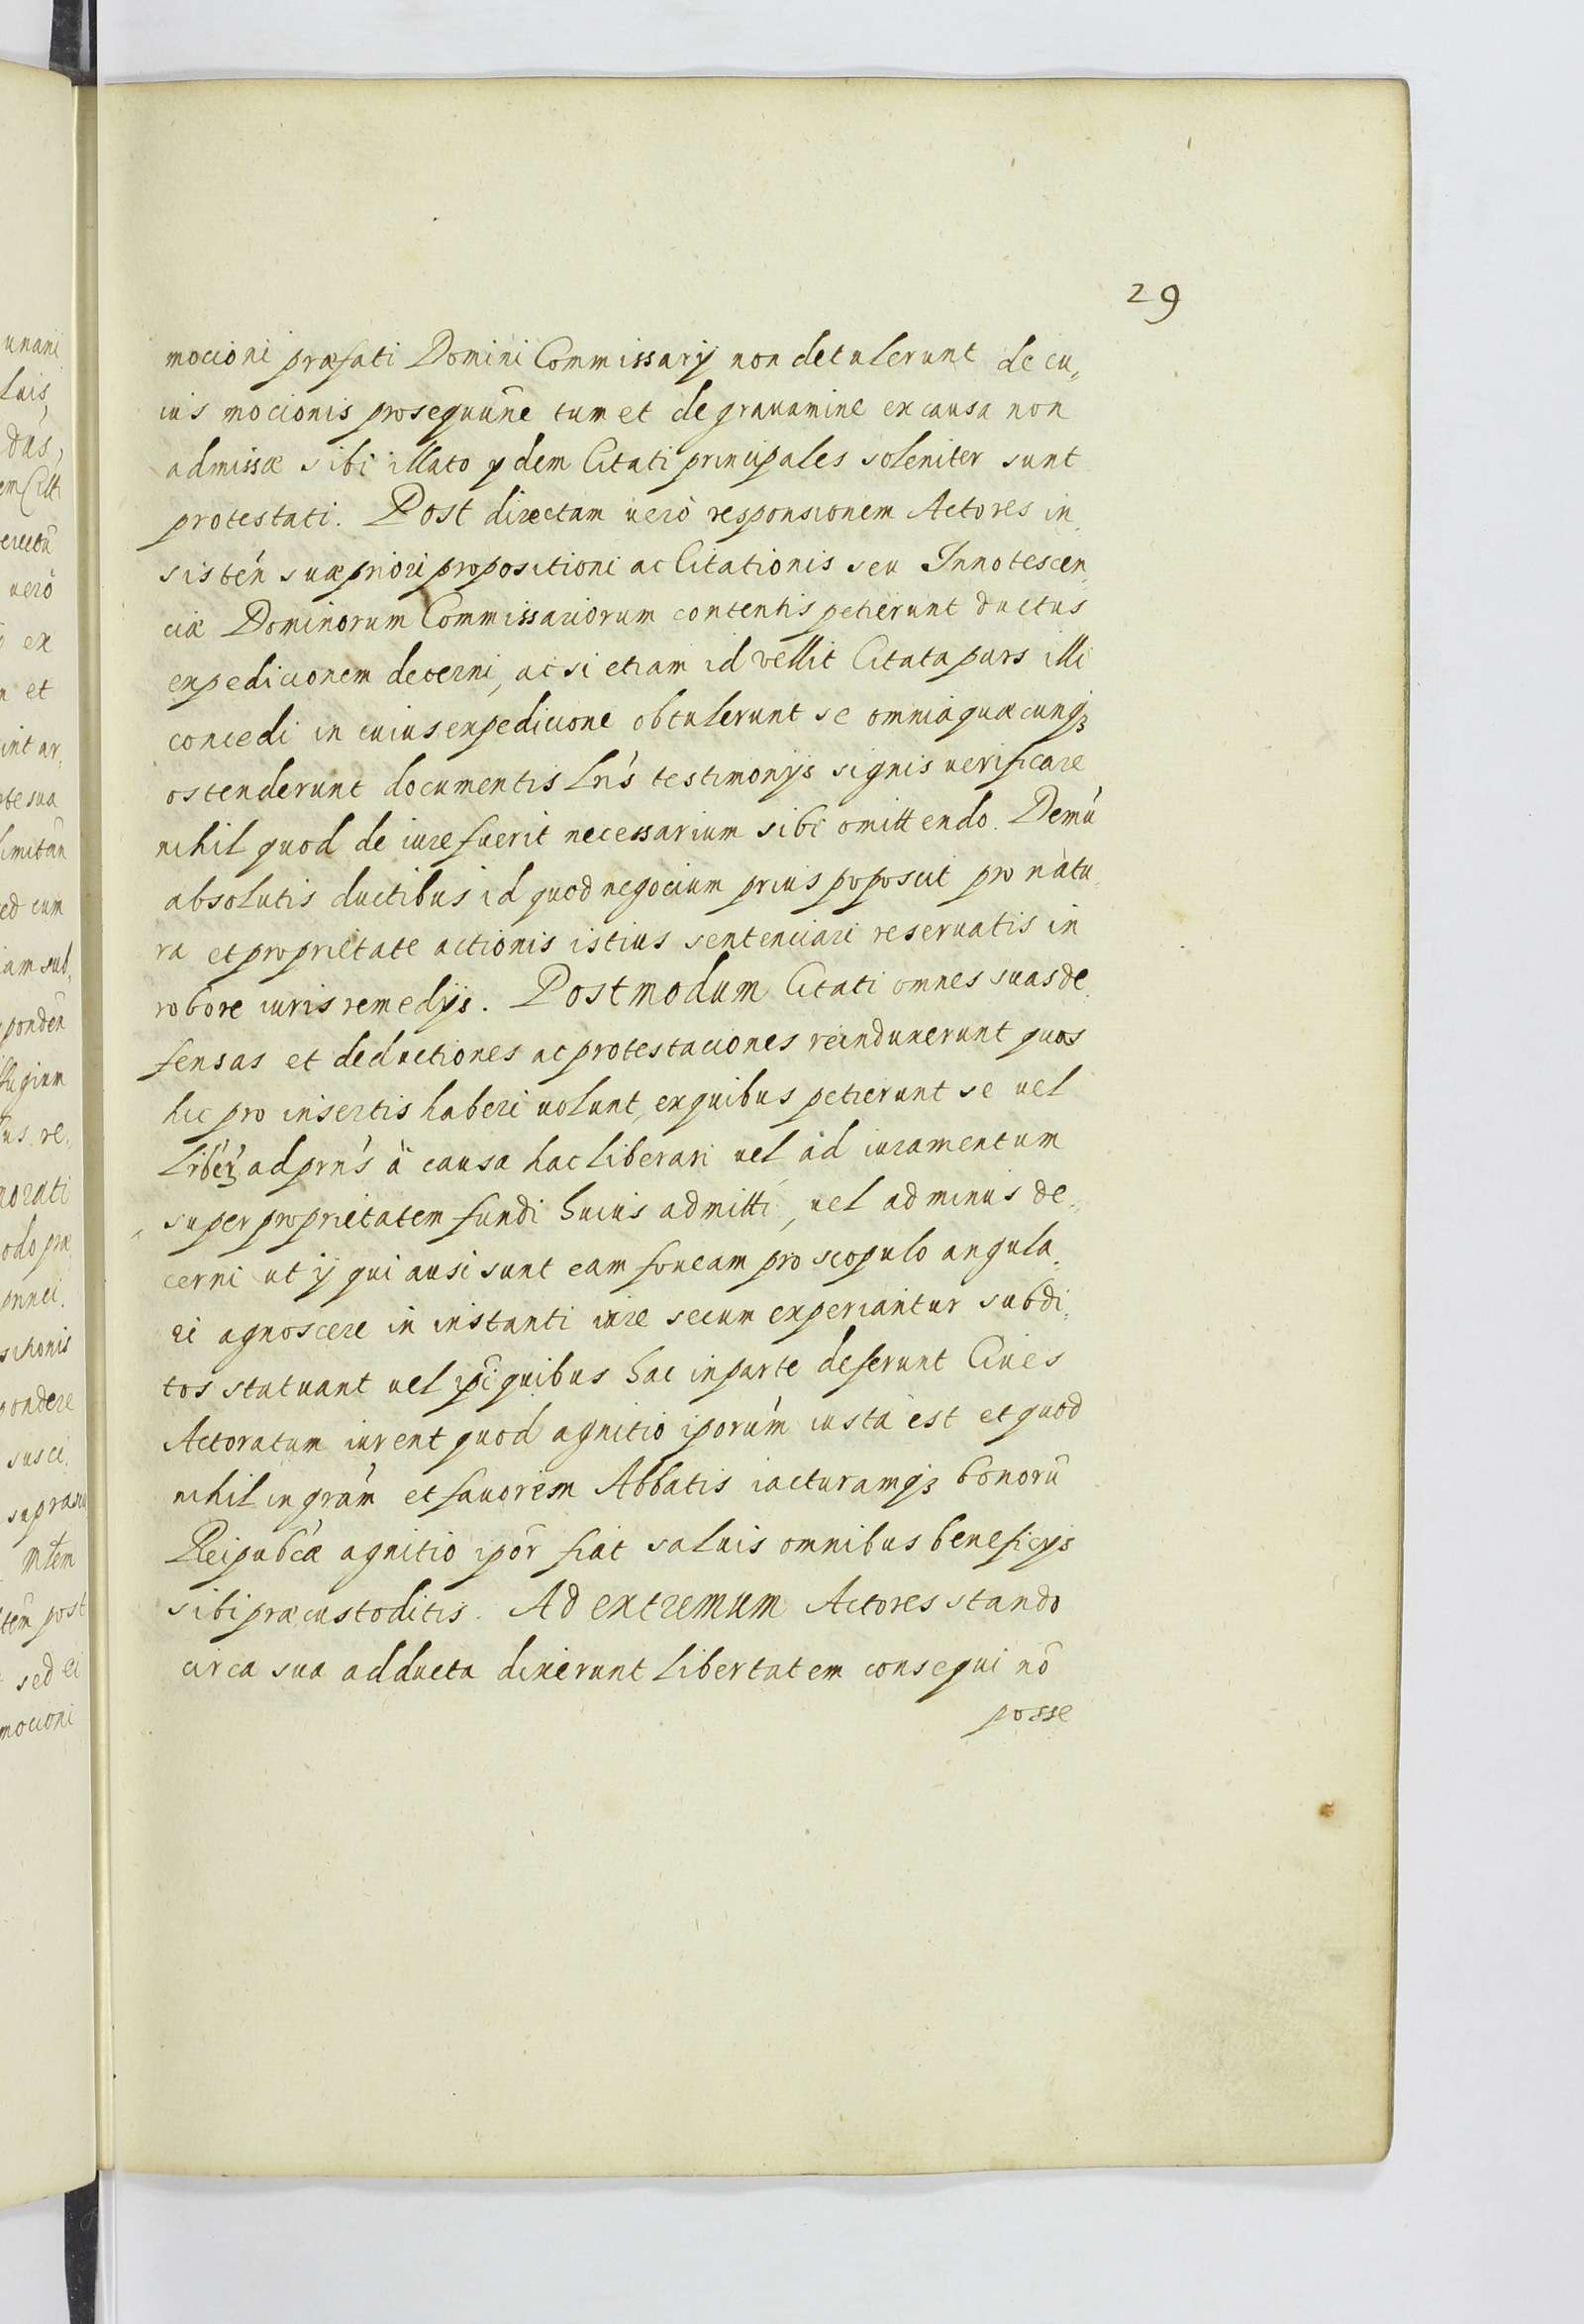 29
mocioni præfati Domini Commissarij non detulerunt de cu„
ius mocionis prosequũne tum et de grauamine ex causa non
admissæ sibi illato ijdem Citati principales soleniter sunt
protestati. Post directam uerò responsionem Actores in„
sisteń suæ priori propositioni ac Citationis seu Innotescen„
ciæ Dominorum Commissariorum contentis petierunt ductus
expedicionem decerni, ac si etiam id vellit Citata pars illi
concedi in cuius expedicione obtulerunt se omnia quæcunqꝫ
ostenderunt documentis Lrís testimonijs signis uerificare
nihil quod de iure fuerit necessarium sibi omittendo. Demũ
absolutis ductibus id quod negocium prius poposcit pro natu„
ra et proprietate actionis istius sentenciari reseruatis in
robore iuris remedijs. Postmodum Citati omnes suas de„
fensas et deductiones ac protestaciones reinduxerunt quos
hic pro insertis haberi uolunt, ex quibus petierunt se uel
Liberꝫ ad prńs à causa hac liberari uel ad iuramentum
super proprietatem fundi huius admitti, uel ad minus de„
cerni ut ij qui ausi sunt eam foueam pro scopulo angula„
ri agnoscere in instanti iure secum experiantur subdi„
tos statuant uel ip̃i quibus hac in parte deferunt Ciues
Actoratum iurent quod agnitio iporúm iusta est et quod
nihil in grám et fauorem Abbatis iacturamqꝫ bonorũ
Reipubcæ agnitio ipõr fiat saluis omnibus beneficijs
sibi præcustoditis. Ad extremum Actores stando
circa sua adducta dixerunt libertatem consequi nõ
posse